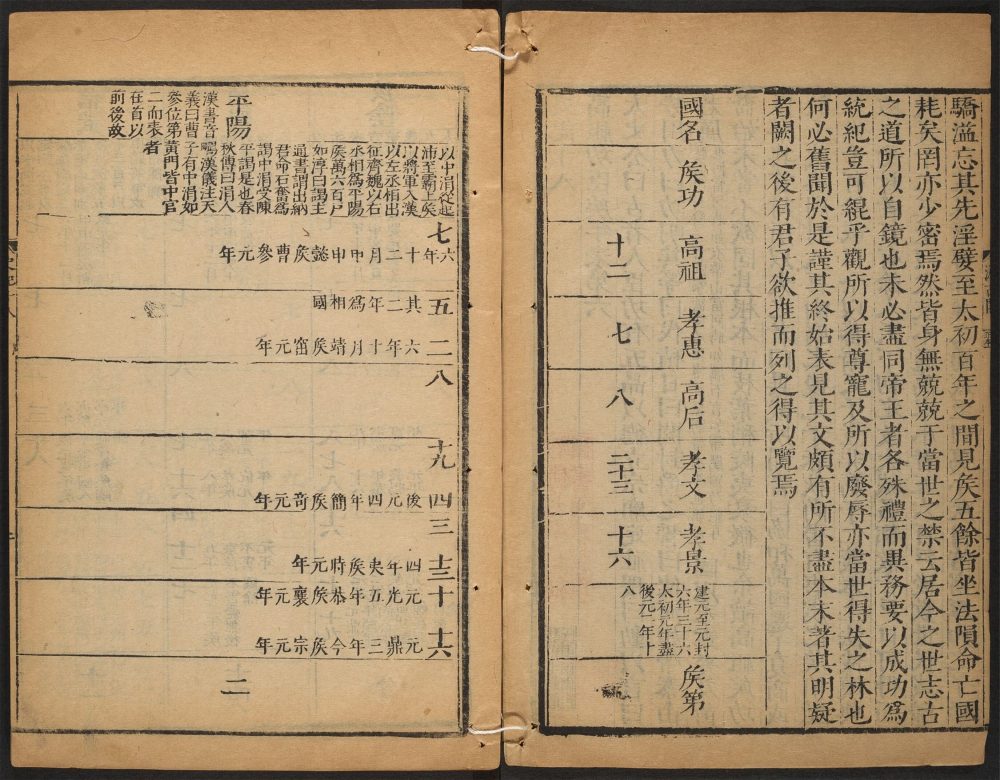 驕溢忘其先淫嬖至太初百年之間見矦五餘皆坐法隕命亡國
耗矣罔亦少密焉然皆身無兢兢于當世之禁云居今之世志古
之道所以自鏡也未必盡同帝王者各殊禮而異務要以成功爲
統紀豈可緄乎觀所以得尊寵及所以廢辱亦當世得失之林也
何必舊聞於是謹其終始表見其文頗有所不盡本末著其明疑
者闕之後有君子欲推而列之得以覽焉
國名
矦功
高祖
十二
孝惠
七
高后
八
孝文
二十三
孝景
十六
建元至元封
六年三十六
太初元年盡
後元二年十
八
矦第
平陽
漢書音
義曰曹
參位第
二而表
在首以
前後故
以中涓從起
沛至霸上矦
以將軍入漢
以左丞相出
征齊魏以右
丞相爲平陽
矦萬六百戶
如淳曰謁主
通書謂出納
君命石奮爲
謁中涓受陳
平謁是也春
秋傳曰涓人
疇漢儀注天
子有中涓如
黃門皆中官
者
七
六年十二月甲申懿矦曹參元年
五
其二年爲相國
二
六年十月靖矦窋元年
八
十九
四
後元四年簡矦奇元年
三
十三
四年夷矦時元年
十
元光五年恭矦襄元年
十六
元鼎三年今矦宗元年
二